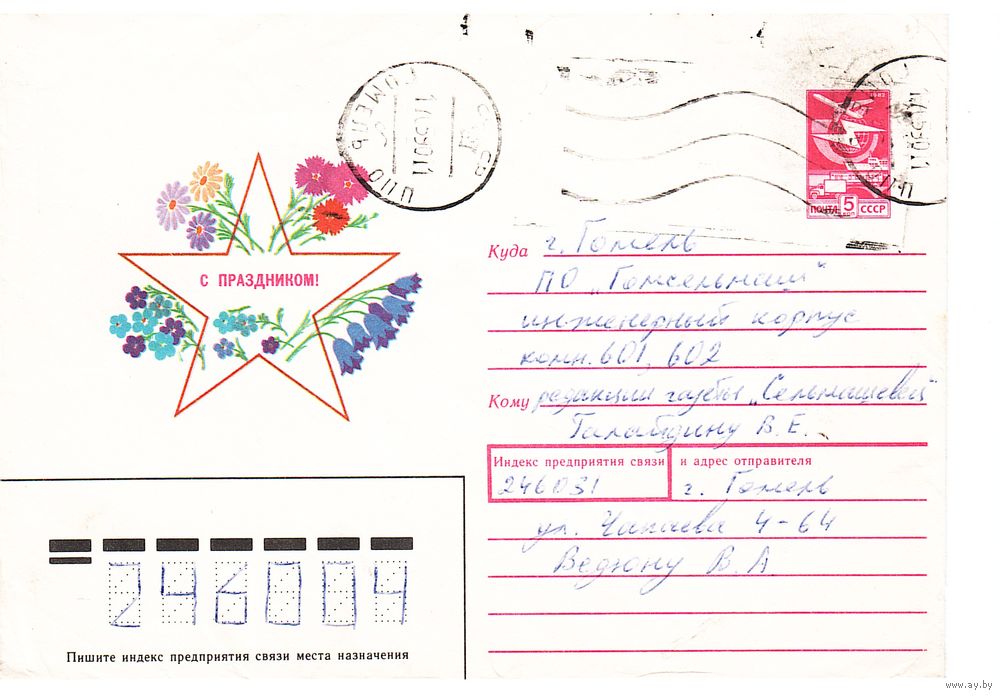 ГОМЕЛЬ
ПОЧТА 5 СССР
С ПРАЗДНИКОМ!
Куда г. Гомель
ПО „Гомсельмаш"
инженерный корпус
комн. 601, 602
Кому редакции газеты „Сельмашевец"
В. Е.
Индекс предприятия связи и адрес отправителя
246031 г. Гомель
ул. Чапаева 4-64
Ведюну В. А
246004
Пишите индекс предприятия связи места назначения
www.ay.by